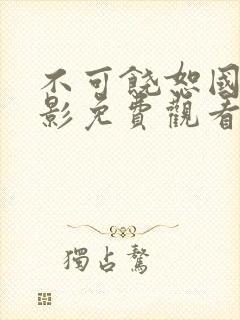 不可饒恕國
影免費觀看
獨占鰲